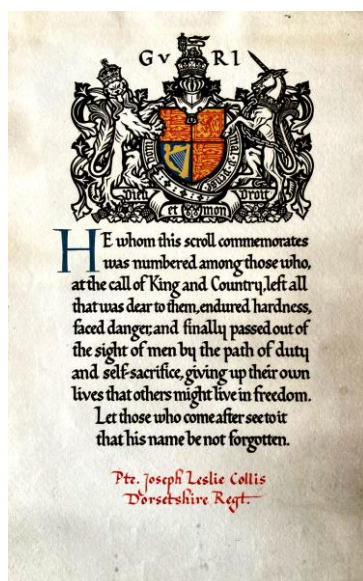 GVRI
HONI SOIT QUI MAL Y PENSE
Dieu et mon Droit
HE whom this scroll commemorates
was numbered among those who,
at the call of King and Country, left all
that was dear to them, endured hardness,
faced danger, and finally passed out of
the sight of men by the path of duty
and self-sacrifice, giving up their own
lives that others might live in freedom.
Let those who come after see to it
that his name be not forgotten.
Pte. Joseph Leslie Collis
Dorsetshire Regt.